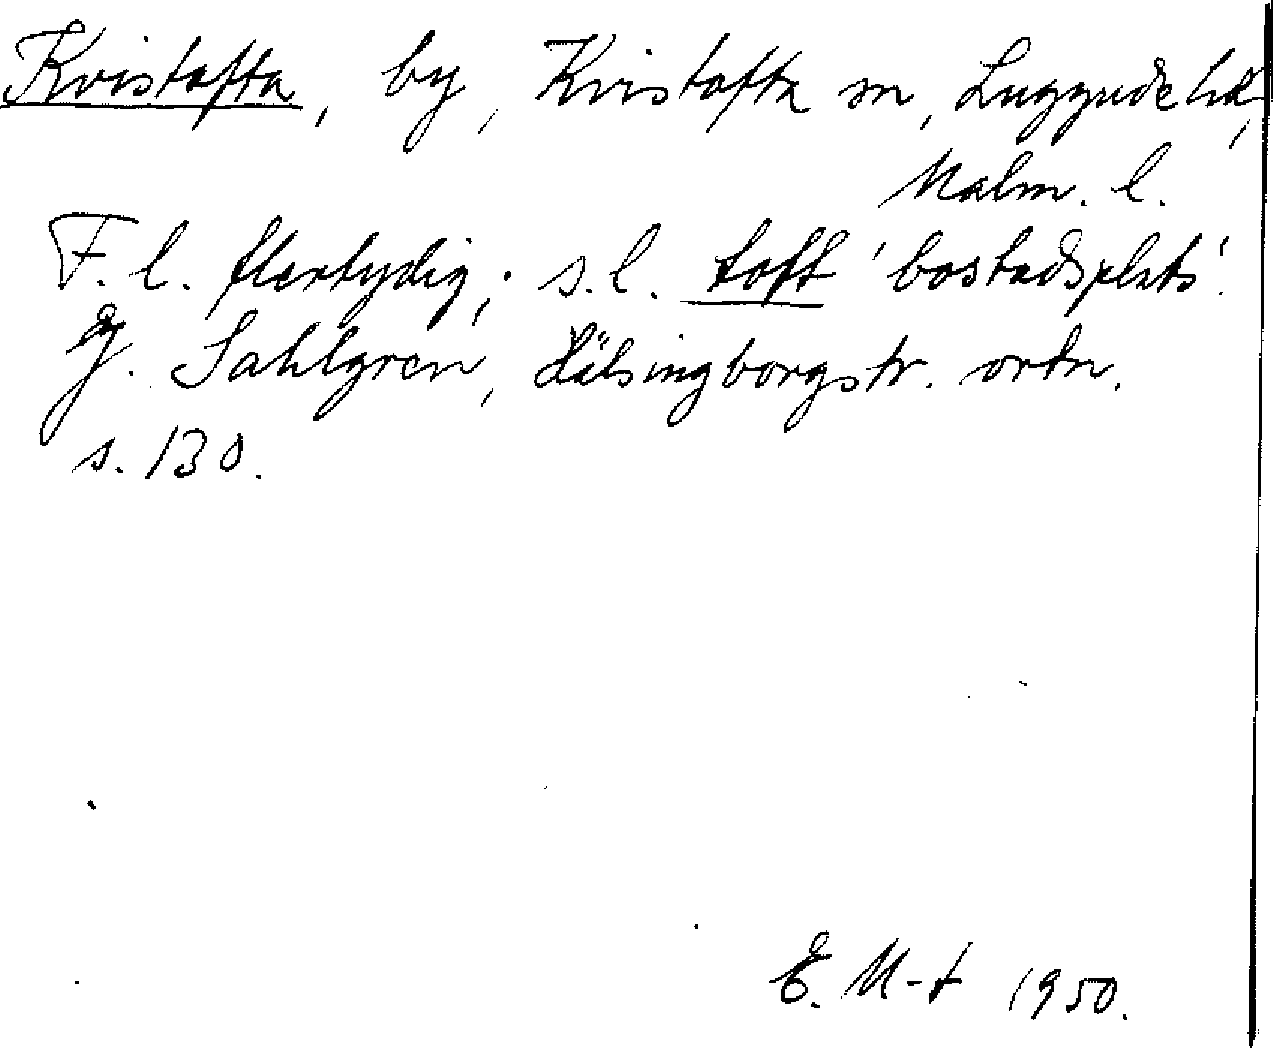 Kvistofta, by, Kvistofta sn, Luggude hd,
Malm. l.
F. l. flertydig; s. l. toft 'bostadsplats'.
J. Sahlgren, Hälsingborgstr. ortn.
s. 130.
E. M-t 1950.